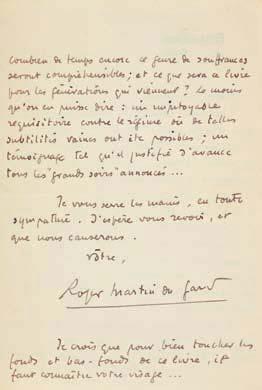 Combien de temps encore ce genre de souffrances
seront compréhensibles ; et ce que sera ce livre
pour les générations qui viennent ? Le moins
qu'on en puisse dire : un impitoyable
requisitoire contre le régime où de telles
subtilités vaines ont été possibles ; un
témoignage tel qu'il justifie d'avance
tous les grands soirs annoncés...
Je vous serre les mains, en toute
sympathie. J'espère vous revoir, et
que nous causerons.
Vôtre,
Roger Martin du Gard
Je crois que pour bien toucher les
fonds et bas-fonds de ce livre, il
faut connaître votre visage...